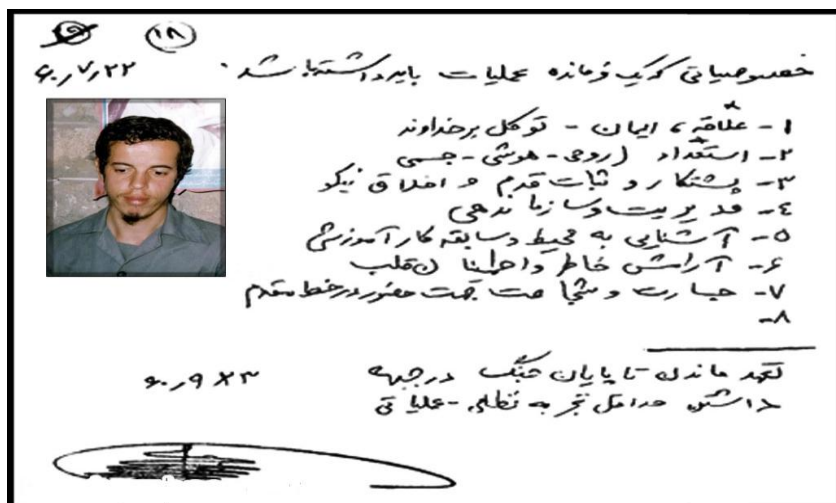 ۱۸
۶۰/۷/۲۲
خصوصیاتی که یک فرمانده عملیات باید داشته باشد.
۱- علاقه، ایمان - توکل بر خداوند
۲- استعداد (روحی - هوشی - جسمی
۳- پشتکار و ثبات قدم و اخلاق نیکو
۴- مدیریت و سازماندهی
۵- آشنایی به محیط و سابقه کار آموزشی
۶- آرامش خاطر و اطمینان قلب
۷- جسارت و شجاعت جهت حضور در خط مقدم
۸-
تعهد ماندن تا پایان جنگ در جبهه
داشتن حداقل تجربه نظامی - عملیاتی